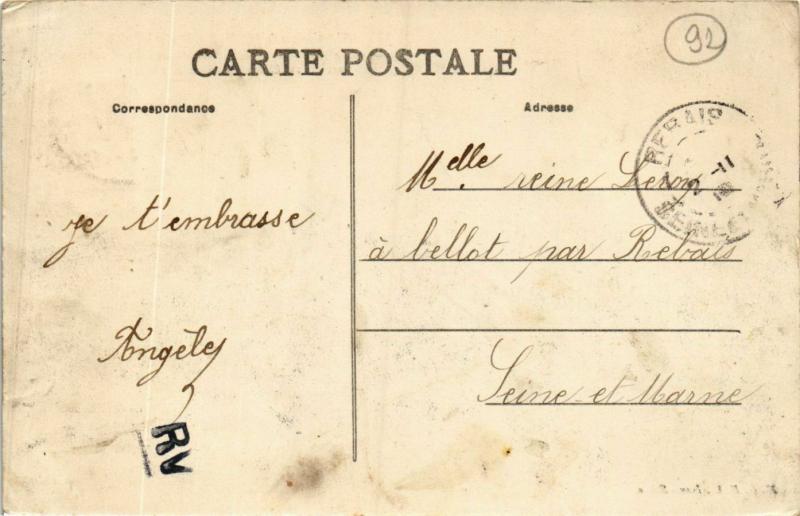 92
CARTE POSTALE
Correspondance
Adresse
REBAIS
2 -11
je t'embrasse
Angèle
Melle. reine Leroy
à bellot par Rebais
Seine-et-Marne
RV